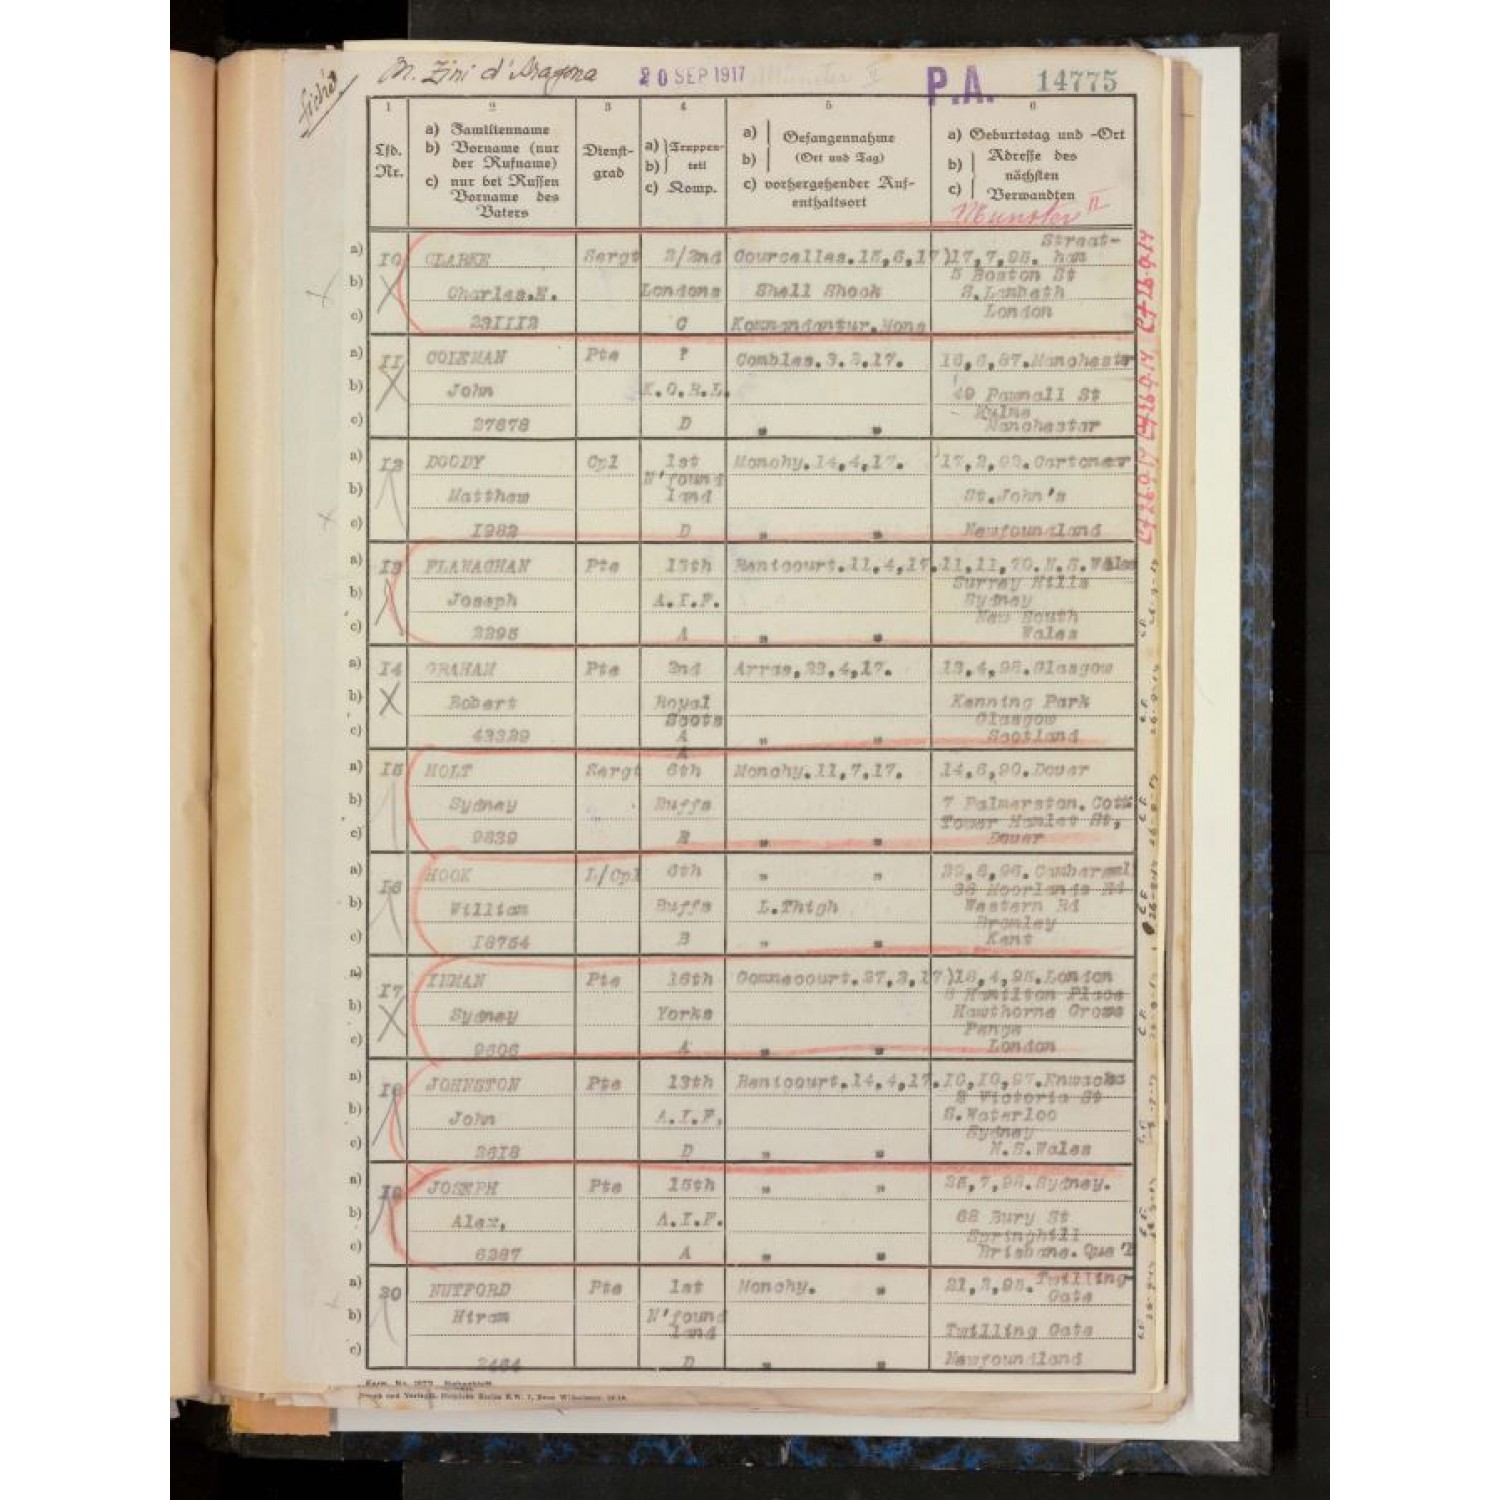 M. Zini d'Aragona 20 SEP 1917 P.A. 14775
fiché
1 2 3 4 5 6
Lfd. Nr.
a) Familienname
b) Vorname (nur der Rufname)
c) nur bei Russen Vorname des Vaters
Dienst-grad
a) b) Truppen-teil
c) Komp.
a) b) Gefangennahme (Ort und Tag)
c) vorhergehender Auf-enthaltsort
a) Geburtstag und -Ort
b) c) Adresse des nächsten Verwandten
Munster II
a) 10 CLARKE Sergt 2/2nd Courcelles.15,6,17) 17,7,95. Streat-ham
5 Boston St
b) Charles.E. Londons Shell Shock S.Lambeth
London
c) 231112 C Kommandantur.Mons
a) 11 COLEMAN Pte ? Combles.3.3.17. 16,6,87.Manchester
b) John K.O.R.L. 49 Pownall St
Hulme
c) 27678 D " " Manchester
a) 12 DOODY Cpl 1st Monchy.14,4,17.
b) Matthew N'found land St.John's
c) 1982 D " " Newfoundland
a) 13 FLANAGHAN Pte 13th 11,4,17. 11,11,70.N.S.Wales
Surrey Hills
b) Joseph A.I.F. Sydney
New South
c) 2295 A " " Wales
a) 14 GRAHAM Pte 2nd Arras,23,4,17. 12,4,98.Glasgow
b) Robert Royal Scots Kenning Park
Glasgow
c) 43329 A " " Scotland
a) 15 HOLT Sergt 6th Monchy.11,7,17. 14,6,90.Dover
b) Sydney Buffs 7 Palmerston. Cott
Tower Hamlet St,
c) 9839 " " Dover
a) 16 HOOK L/Cpl 6th " "
38 Moorlands Rd
b) William Buffs L.Thigh Western Rd
Bromley
c) 18754 B " " Kent
a) 17 INMAN Pte 16th Gommecourt.27,2,17) 18,4,95.London
8 Hamilton Place
b) Sydney Yorks Hawthorne Grove
Penge
c) 9606 A " " London
a) 18 JOHNSTON Pte 13th 14,4,17. 10,10,97.
2 Victoria St
b) John A.I.F. S.Waterloo
Sydney
c) 2618 D " " N.S.Wales
a) 19 JOSEPH Pte 15th " " 25,7,98.Sydney.
b) Alex, A.I.F. 68 Bury St
Springhill
c) 6287 A " " Brisbane. Que'D
a) 20 NUTFORD Pte 1st Monchy. " 21,2,95. Twilling Gate
b) Hiram N'found land Twilling Gate
c) 2464 D " " Newfoundland